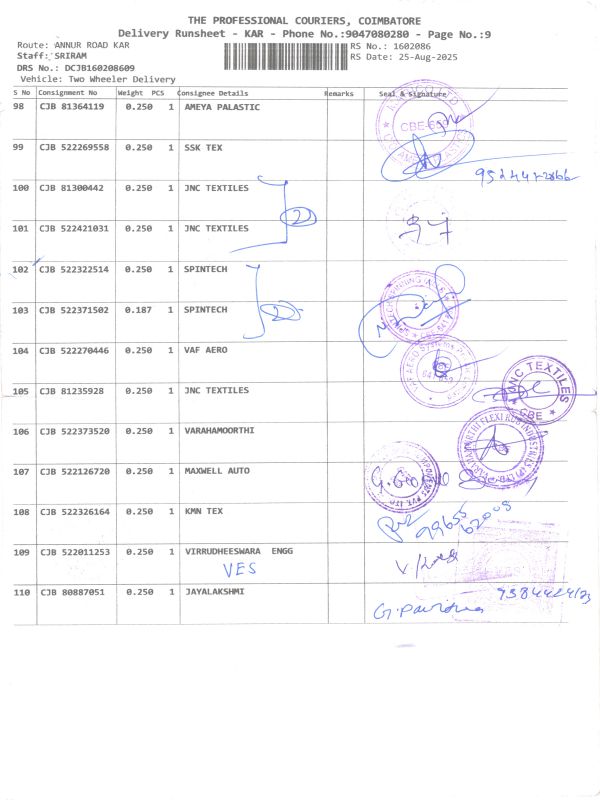 THE PROFESSIONAL COURIERS, COIMBATORE
Delivery Runsheet - KAR - Phone No.:9047080280 - Page No.:9
Route: ANNUR ROAD KAR RS No.: 1602086
Staff: SRIRAM RS Date: 25-Aug-2025
DRS No.: DCJB160208609
Vehicle: Two Wheeler Delivery
S No Consignment No Weight PCS Consignee Details Remarks Seal & Signature
98 CJB 81364119 0.250 1 AMEYA PALASTIC
CBE-659
99 CJB 522269558 0.250 1 SSK TEX
100 CJB 81300442 0.250 1 JNC TEXTILES
2
101 CJB 522421031 0.250 1 JNC TEXTILES
102 CJB 522322514 0.250 1 SPINTECH
103 CJB 522371502 0.187 1 SPINTECH
2
104 CJB 522270446 0.250 1 VAF AERO
105 CJB 81235928 0.250 1 JNC TEXTILES
JNC TEXTILES
CBE
106 CJB 522373520 0.250 1 VARAHAMOORTHI
107 CJB 522126720 0.250 1 MAXWELL AUTO
108 CJB 522326164 0.250 1 KMN TEX
99655
62005
109 CJB 522011253 0.250 1 VIRRUDHEESWARA ENGG
VES
110 CJB 80887051 0.250 1 JAYALAKSHMI